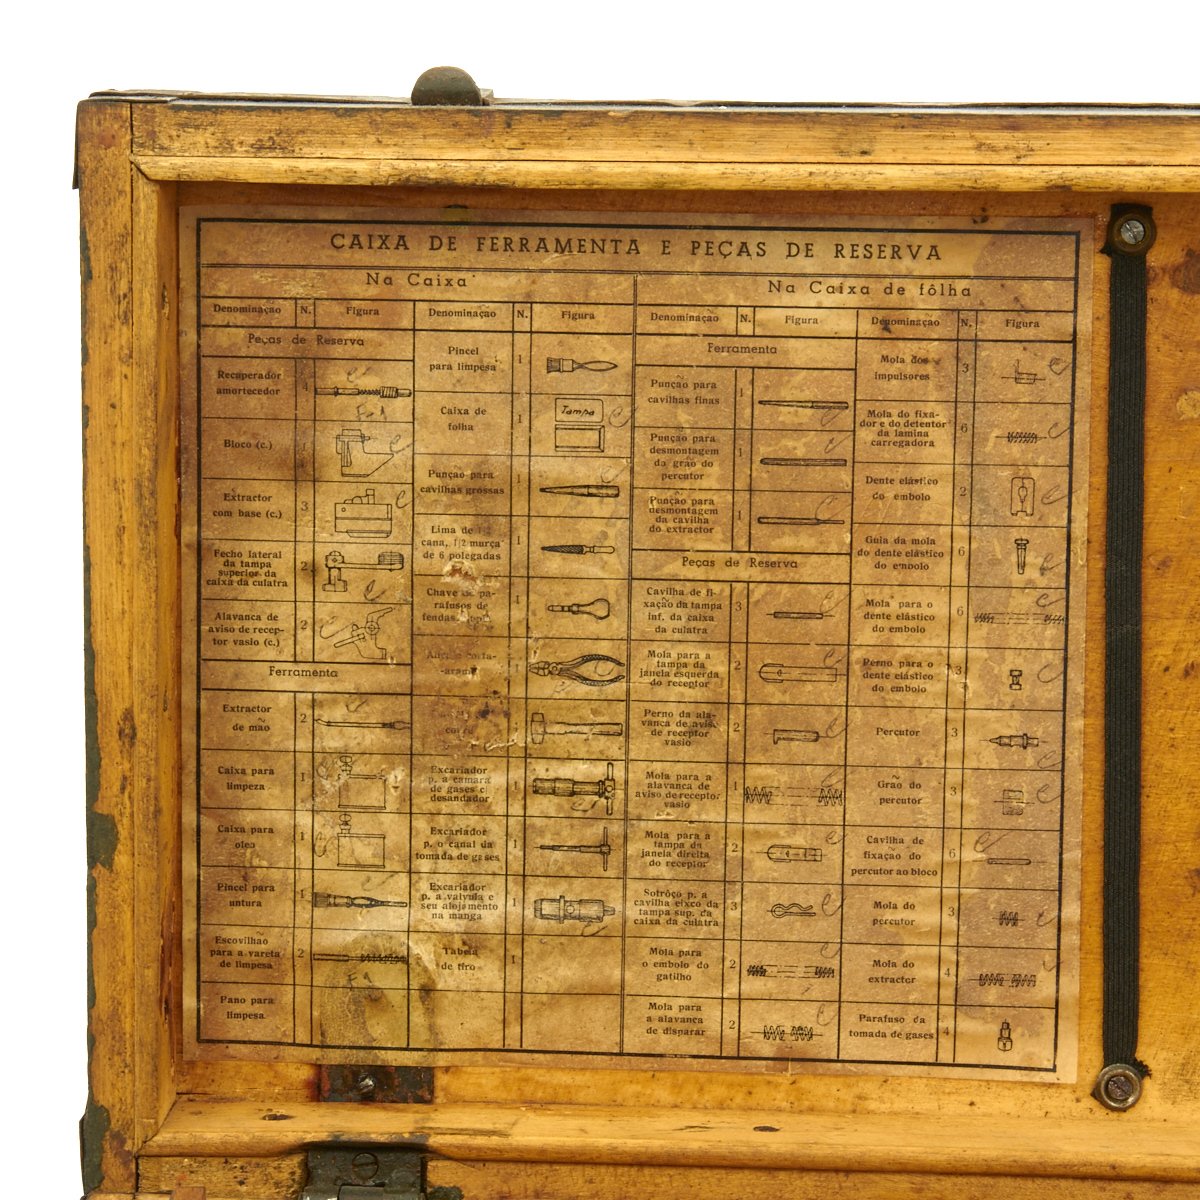 CAIXA DE FERRAMENTA E PEÇAS DE RESERVA
Na Caixa
Denominação N. Figura
Peças de Reserva
Recuperador 4
amortecedor
F-1
Bloco (c.) 1
Extractor 3
com base (c.)
Fecho lateral 2
da tampa
superior da
caixa da culatra
Alavanca de 2
aviso de recep-
tor vasio (c.)
Ferramenta
Extractor 2
de mão
Caixa para 1
limpeza
Caixa para 1
oleo
Pincel para 1
untura
Escovilhão 2
para a vareta
de limpesa
F-1
Pano para
limpesa
Denominação N. Figura
Pincel 1
para limpesa
Caixa de 1
folha
Tampa
Punção para 1
cavilhas grossas
Lima de 1/2 1
cana, 1/2 murça
de 6 polegadas
Chave de pa- 1
rafusos de
fendas
corta- 1
-arame
Excariador 1
p. a camara
de gases c
desandador
Excariador 1
p. o canal da
tomada de gases
Excariador 1
p. a valvula e
seu alojamento
na manga
Tabela 1
de tiro
Na Caixa de fôlha
Denominação N. Figura
Ferramenta
Punção para 1
cavilhas finas
Punção para 1
desmontagem
da grão do
percutor
Punção para 1
desmontagem
da cavilha
do extractor
Peças de Reserva
Cavilha de fi- 3
xação da tampa
inf. da caixa
da culatra
Mola para a 2
tampa da
janela esquerda
do receptor
Perno da ala- 2
vanca de aviso
de receptor
vasio
Mola para a 1
alavanca de
aviso de receptor
vasio
Mola para a 2
tampa da
janela direita
do receptor
Sotrôço p. a 3
cavilha eixco da
tampa sup. da
caixa da culatra
Mola para 2
o embolo do
gatilho
Mola para 2
a alavanca
de disparar
Denominação N. Figura
Mola dos 3
impulsores
Mola do fixa- 6
dor e do detentor
da lamina
carregadora
Dente elástico 2
do embolo
Guia da mola 6
do dente elástico
do embolo
Mola para o 6
dente elástico
do embolo
Perno para o 3
dente elástico
do embolo
Percutor 3
Grão do 3
percutor
Cavilha de 6
fixação do
percutor ao bloco
Mola do 3
percutor
Mola do 4
extractor
Parafuso da 4
tomada de gases